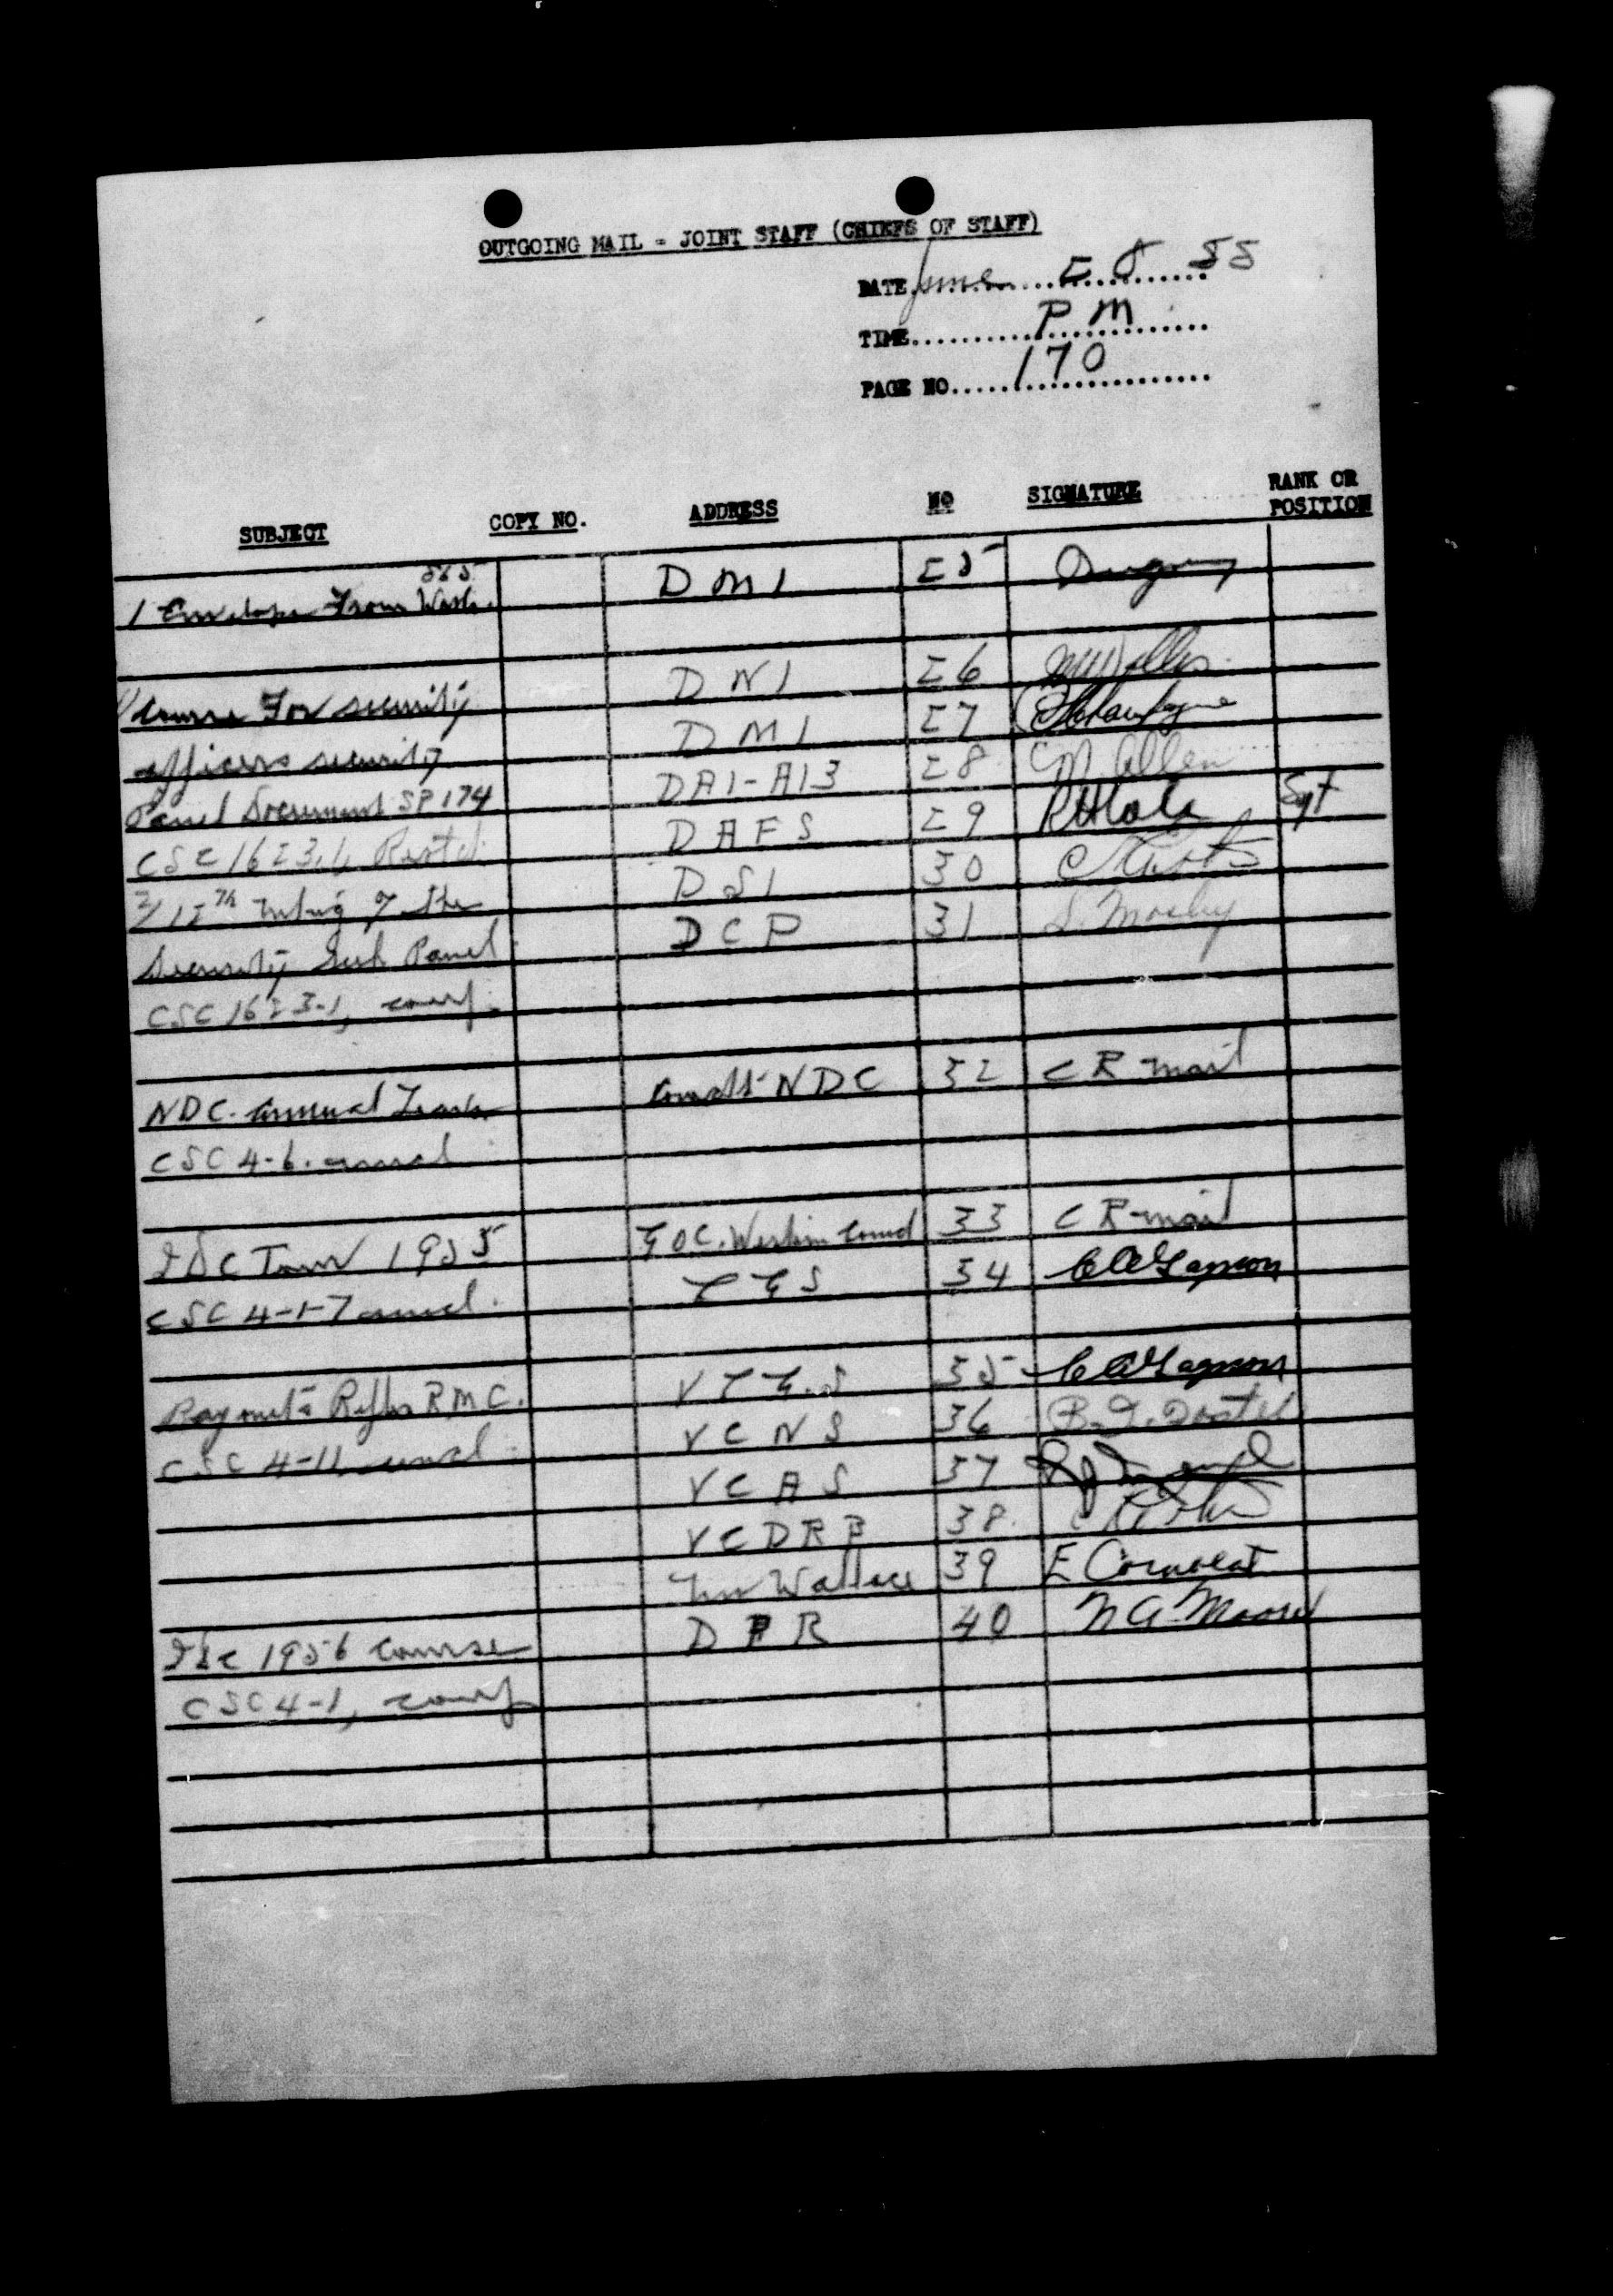 OUTGOING MAIL - JOINT STAFF (CHIEFS OF STAFF)
DATE June 28 55
TIME P M
PAGE NO 170
SUBJECT COPY NO. ADDRESS NO SIGNATURE RANK OR POSITION
565
1 Envelope From Wash. D M I 25
D N I 26
1/ Course For security D M I 27
officers security DAI-AI3 28 C M Allen
Panel Document SP 174 D A F S 29 Sgt
CSC 1623.1, Restd. D S I 30
2/ 12th Mtng of the D C P 31 S. Mosley
Security Sub Panel
CSC 1623-1, conf.
NDC. Annual Leave Comdt NDC 32 C R mail
CSC 4-6. uncl
IDC Tour 1955 G O C. Western Comd 33 C R mail
CSC 4-1-7 uncl. C G S 34 C A Gagnon
Bayonets Rifles R M C. V C G. S 35 C A Gagnon
CSC 4-11 uncl. V C N S 36
V C A S 37
V C D R B 38
Wallace 39 E
D P R 40 N G. Moore
IDC 1956 course
CSC 4-1, conf